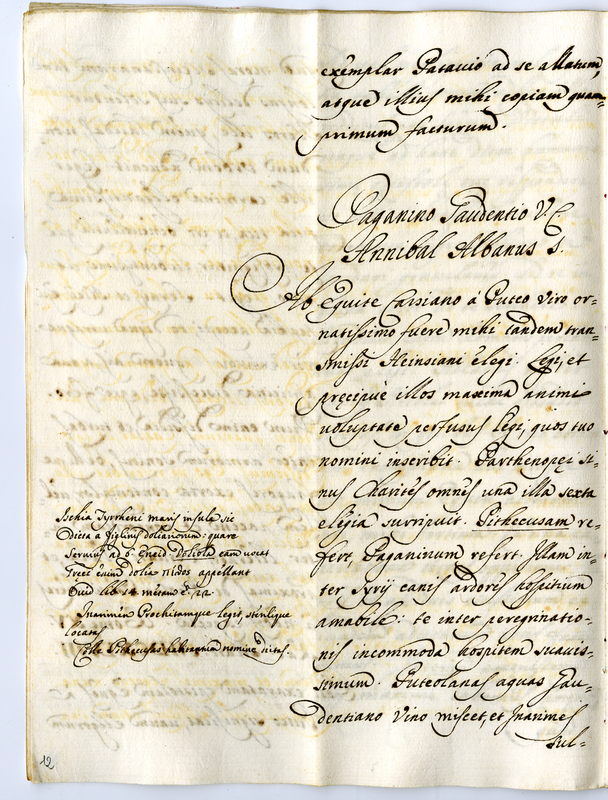 exemplar Patavio ad se allatum,
atque illius mihi copiam quam=
primum facturum.
Paganino Gaudentio V. C.
Annibal Albanus S.
Ab equite Cassiano á Puteo viro or=
natissimo fuere mihi tandem tran=
smissi Heinsiani elegi. Legi, et
precipùe illos maxima animi
voluptate perfusus legi, quos tuo
nomini inscribit. Parthenopei si=
nus Charites omnes una illa sexta
elegia surripuit. Pithecusam re=
fert, Paganinum refert. Illam in=
ter syrij canis ardores hospitium
amabile: te inter peregrinatio=
nis incommoda hospitem suavis=
simum. Puteolanas aquas Gau=
dentiano vino miscet, et Inarimes
sul=
Ischia Tyrrheni maris insula sic
dicta a figlinis doliariorum: quare
Servius ad 6 Aneid. Doliola eam vocat
Greci enim dolia πίθος appellant
Ovid lib 14 metam
Inarimen Prochitamque legit, sterilique
locatas
Colle Pithecusas habitantum nomine dictas.
12